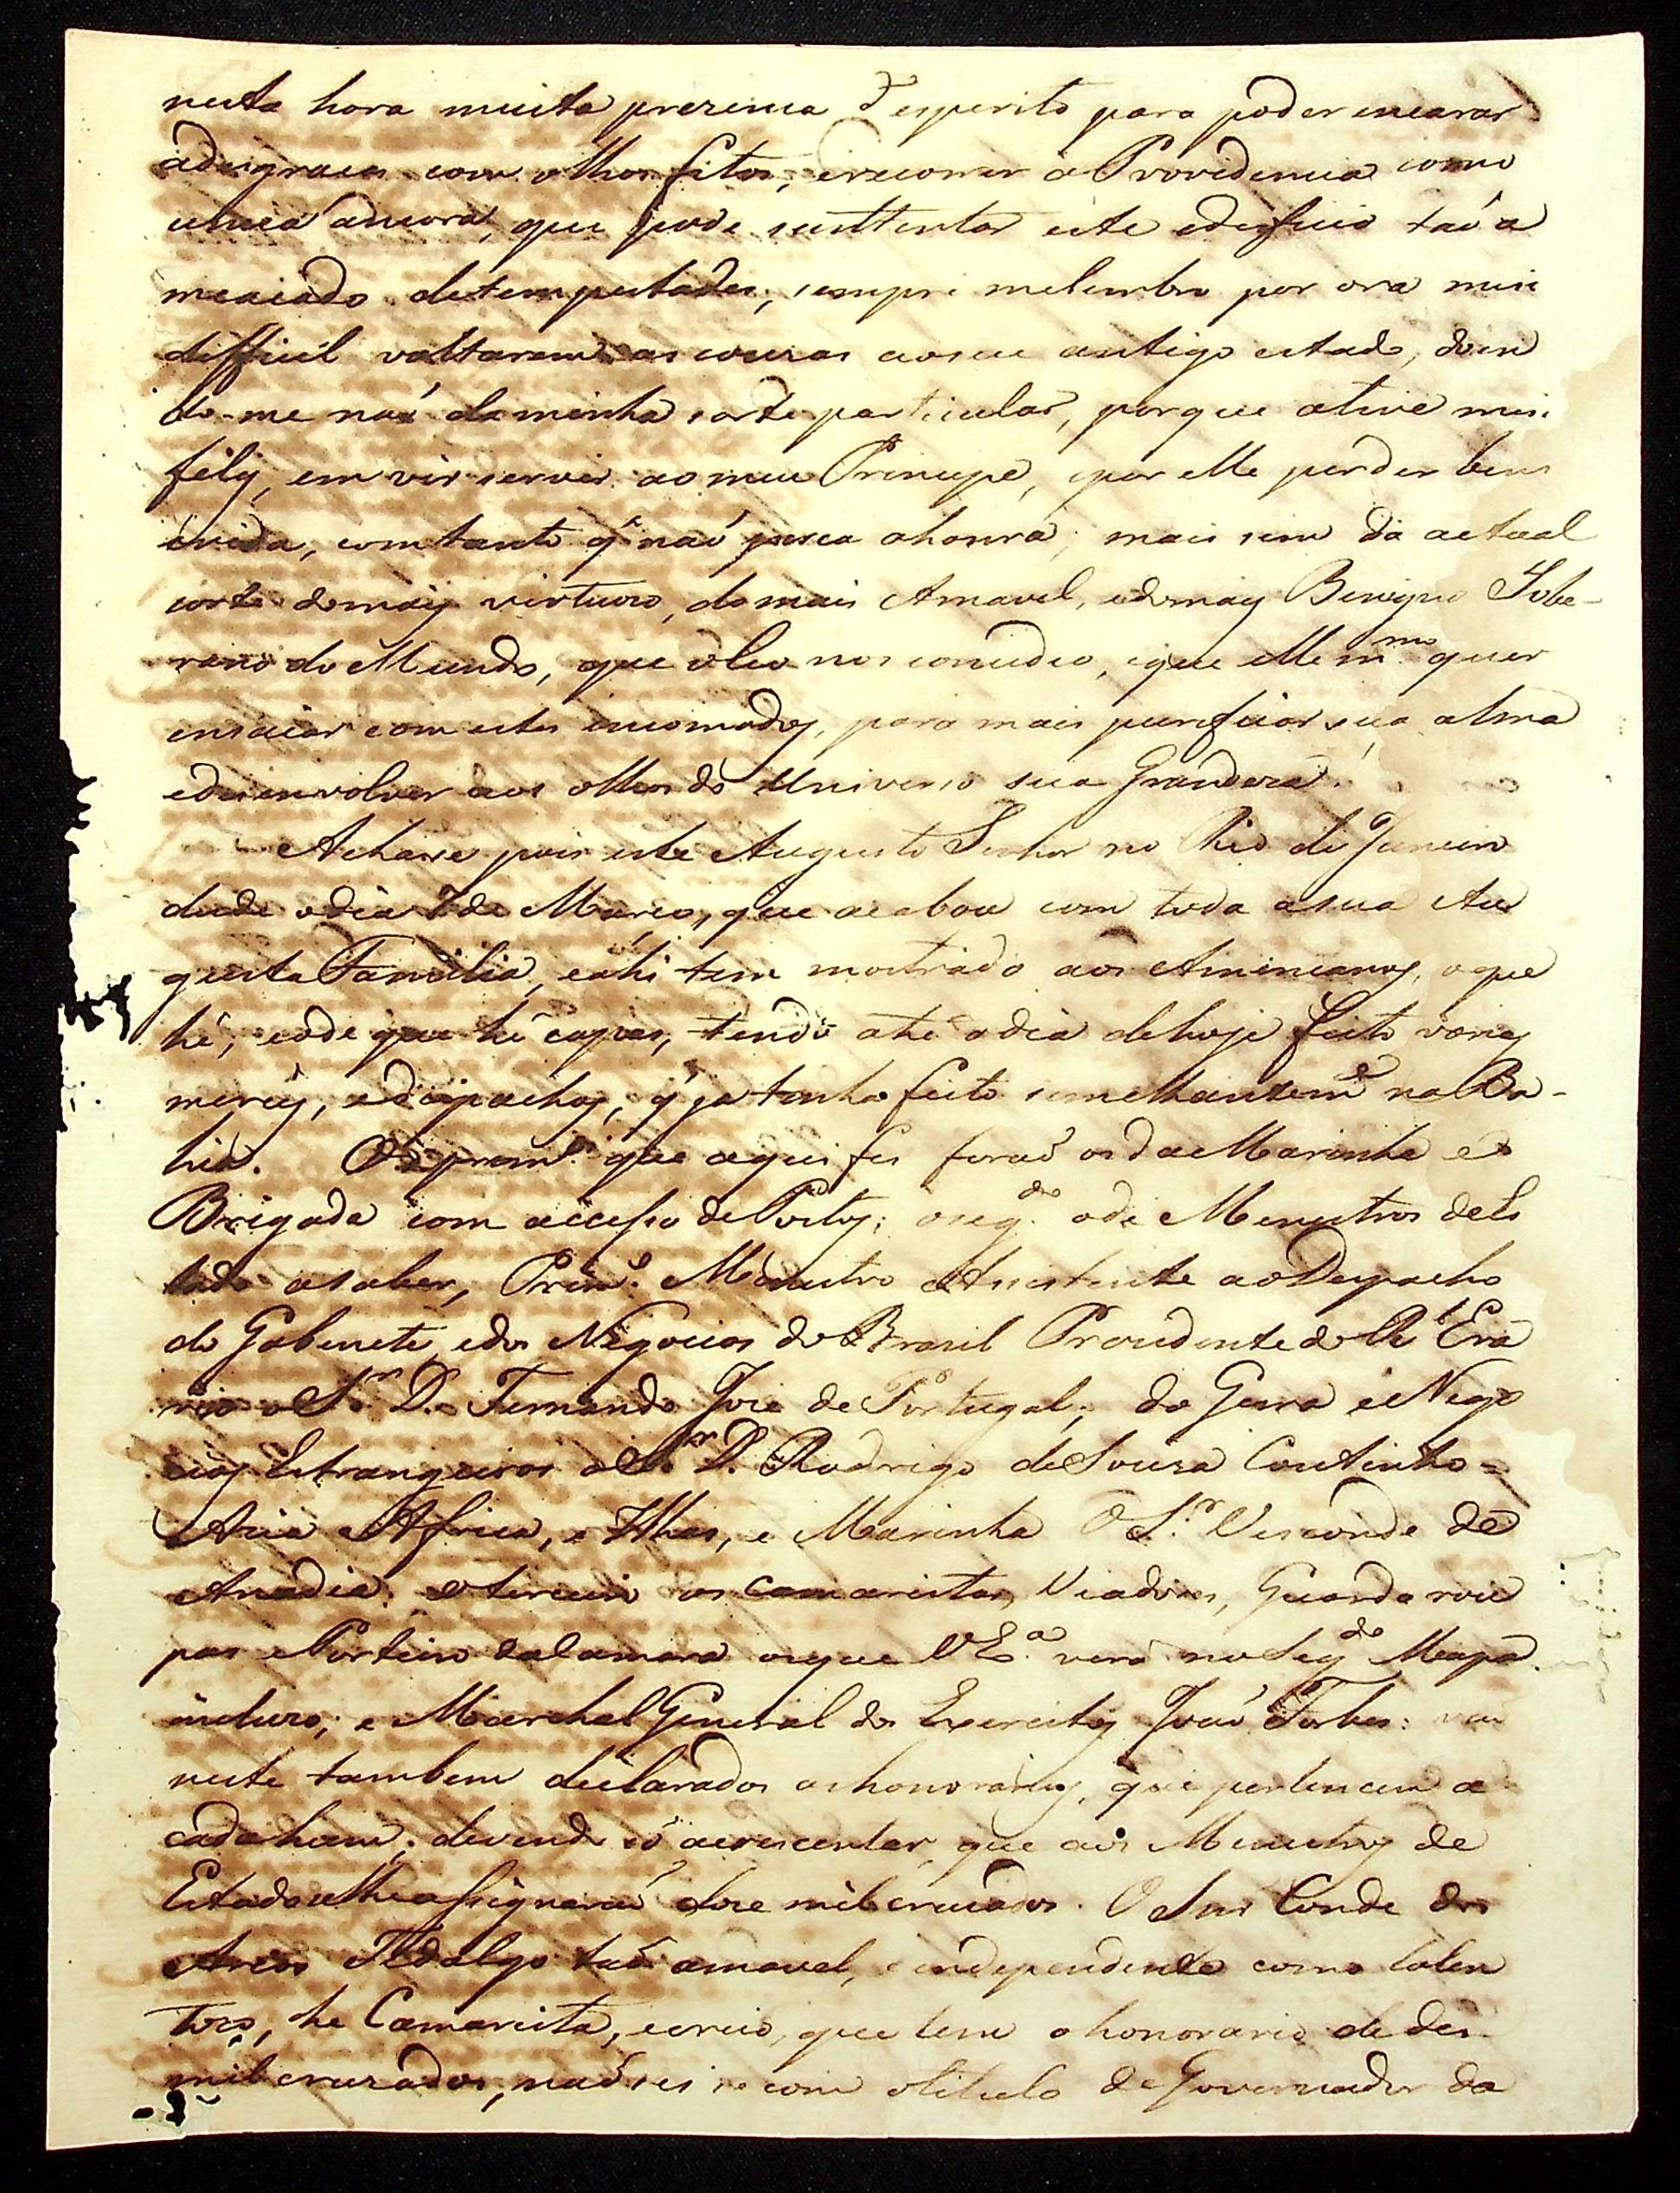 nesta hora muita prezenca d'esperito para poder encarar
adesgraca com olhos fitos, erecorrer á Providencia como
unica ancora, que pode susttentar este edeficio taõ a
meacado detempestades, sempre melembra por ora mui
difficil voltarem as couzas aoseu antigo estado, doen
do-me naõ daminha sorte particular, porque ative mui
felis, em vir servir ao meu Principe, epor elle perder bens
evida, comtanto q̃ naõ perca ahonra; mais sim da actual
sorte domais virtuozo, do mais Amavel, edomais Benigno Sobe-
rano do Mundo, que o Ceo nos concedeo, eque elle m.mo quer
ensaiar com estes incomodos, para mais purificar sua alma
edesenvolver aos olhos do Universo sua Grandeza.
Achase pois este Augusto Senhor no Rio de Janeiro
desde odia 7 de Marco, que acabou com toda asua Au
gusta Familia, eahi tem mostrado aos Americanos, oque
hé, eode que hé capas, tendo athé odia dehoje feito varias
mercês, edespachos, q̃ ja tinha feito semelhantem.e na Ba-
hia. O prim.o que aqui fes foraõ os da Marinha e
Brigada com accesso de Postos; oseg.do ode Menistros de Es
tado asaber, Prim.o Menistro Assistente ao Despacho
do Gabenete, edos Negocios do Brazil Prezidente do R.l Era
rio o S.r D. Fernando Joze de Portugal; da Gerra e Nego
cios Estrangeiros o S.r D. Rodrigo de Souza Coutinho =
Azia Africa, e Ilhas, e Marinha O S.r Visconde de
Anadia; oterceiro os Camaristas, Viadores, Guarda rou
pas e Porteiro da Camara oque V E.a verá no Seg.do Mapa
incluzo; e Marchal General dos Exercitos Joaõ Forbes: vai
neste tambem declarados os honorarios, que pertencem a
cada hum; devendo só acrescentar, que aos Menistros de
Estado se lhe assignaraõ doze mil cruzados. O Snr Conde dos
Arcos Fidalgo taõ amavel, e independente como talen
tozo, he Camarista, ecreio, que tem o honorario de des
mil cruzados, naõ sei se com otitulo de Governador da